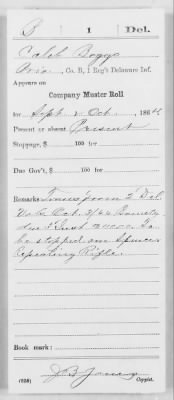 B 1 Del.
Caleb Boggs
Priv., Co. B, 1 Reg't Delaware Inf.
Appears on
Company Muster Roll
for Sept & Oct, 1864
Present or absent Present
Stoppage, $ 100 for
Due Gov't, $ 100 for
Remarks: from 2' Del.
Vols Oct. 2/64 Bounty
due
be stopped one Spencer
Repeating Rifle.
Book mark:
J B Jones
(358) Copyist.